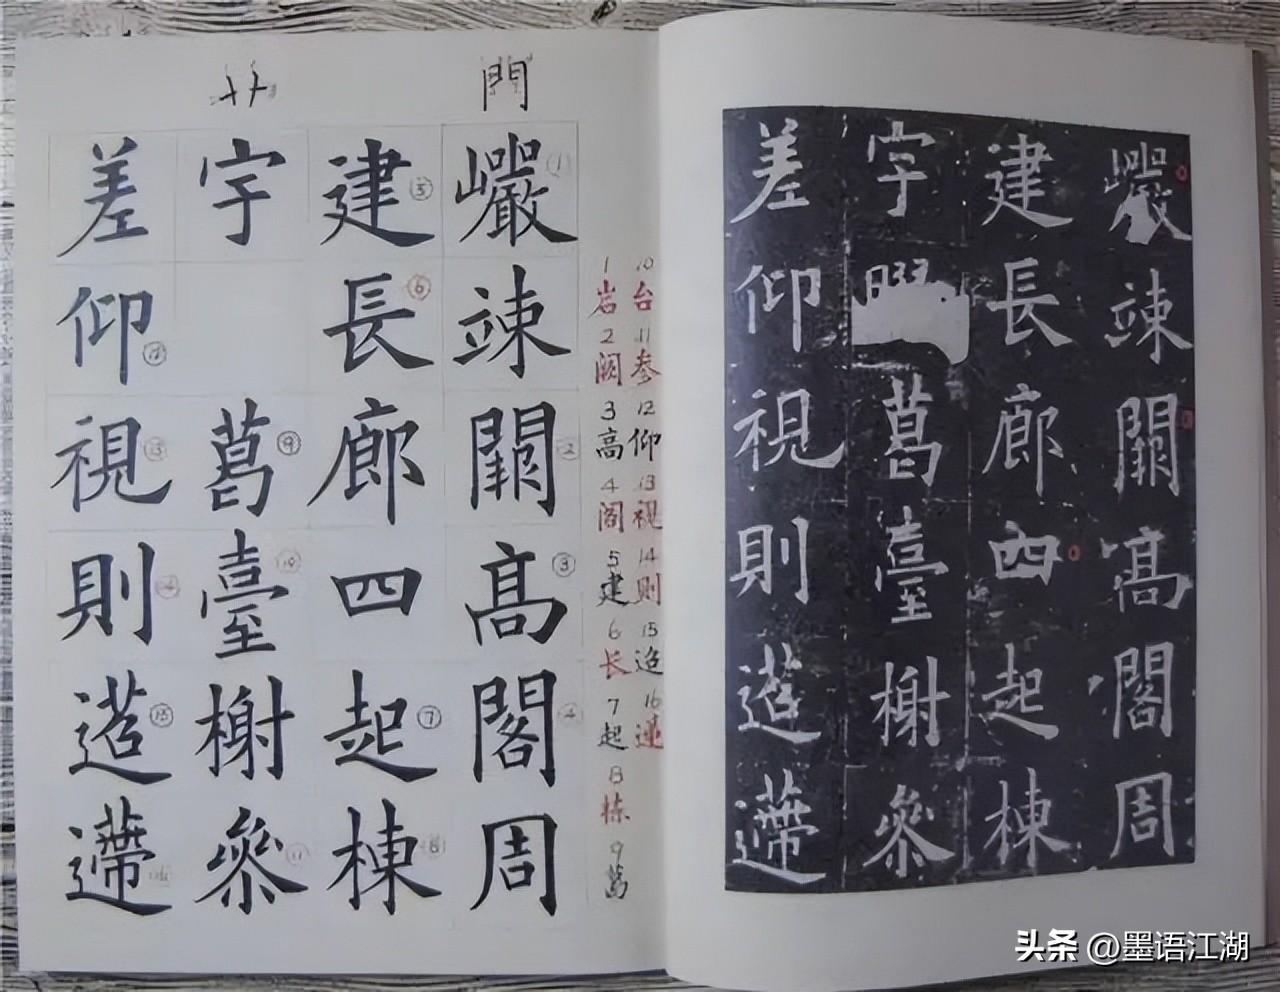 門
艹
巖竦闕高閣周
建長廊四起棟
宇葛臺榭參
差仰視則迢遰
10 台
11 参
12 仰
13 視
14 则
15 迢
16
1 岩
2 阙
3 高
4 阁
5 建
6 长
7 起
8 栋
9 葛
巖竦闕高閣周
建長廊四起棟
宇葛臺榭參
差仰視則迢遰
头条 @墨语江湖